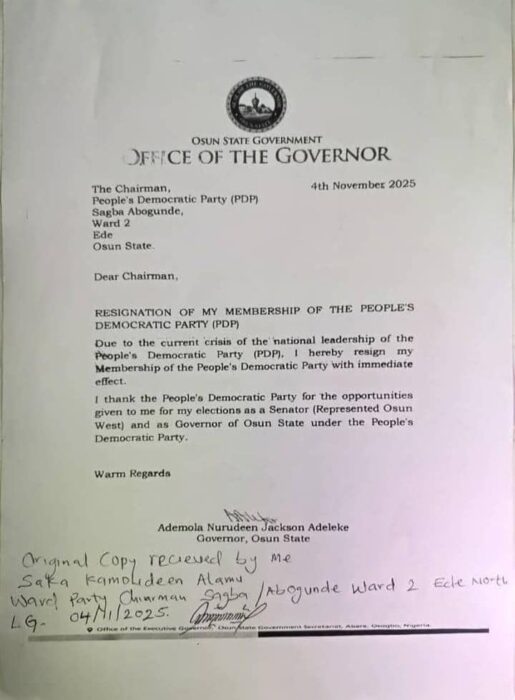 OSUN STATE GOVERNMENT
OFFICE OF THE GOVERNOR
4th November 2025
The Chairman,
People's Democratic Party (PDP)
Sagba Abogunde,
Ward 2
Ede
Osun State.
Dear Chairman,
RESIGNATION OF MY MEMBERSHIP OF THE PEOPLE'S
DEMOCRATIC PARTY (PDP)
Due to the current crisis of the national leadership of the
People's Democratic Party (PDP), I hereby resign my
Membership of the People's Democratic Party with immediate
effect.
I thank the People's Democratic Party for the opportunities
given to me for my elections as a Senator (Represented Osun
West) and as Governor of Osun State under the People's
Democratic Party.
Warm Regards
Ademola Nurudeen Jackson Adeleke
Governor, Osun State
Original Copy recieved by me
Saka Kamolideen Alamu
Ward Party Chairman Sagba /Abogunde Ward 2 Ede North
LG. 04/11/2025.
Office of the Executive Governor, Osun State Government Secretariat, Abere, Osogbo, Nigeria.